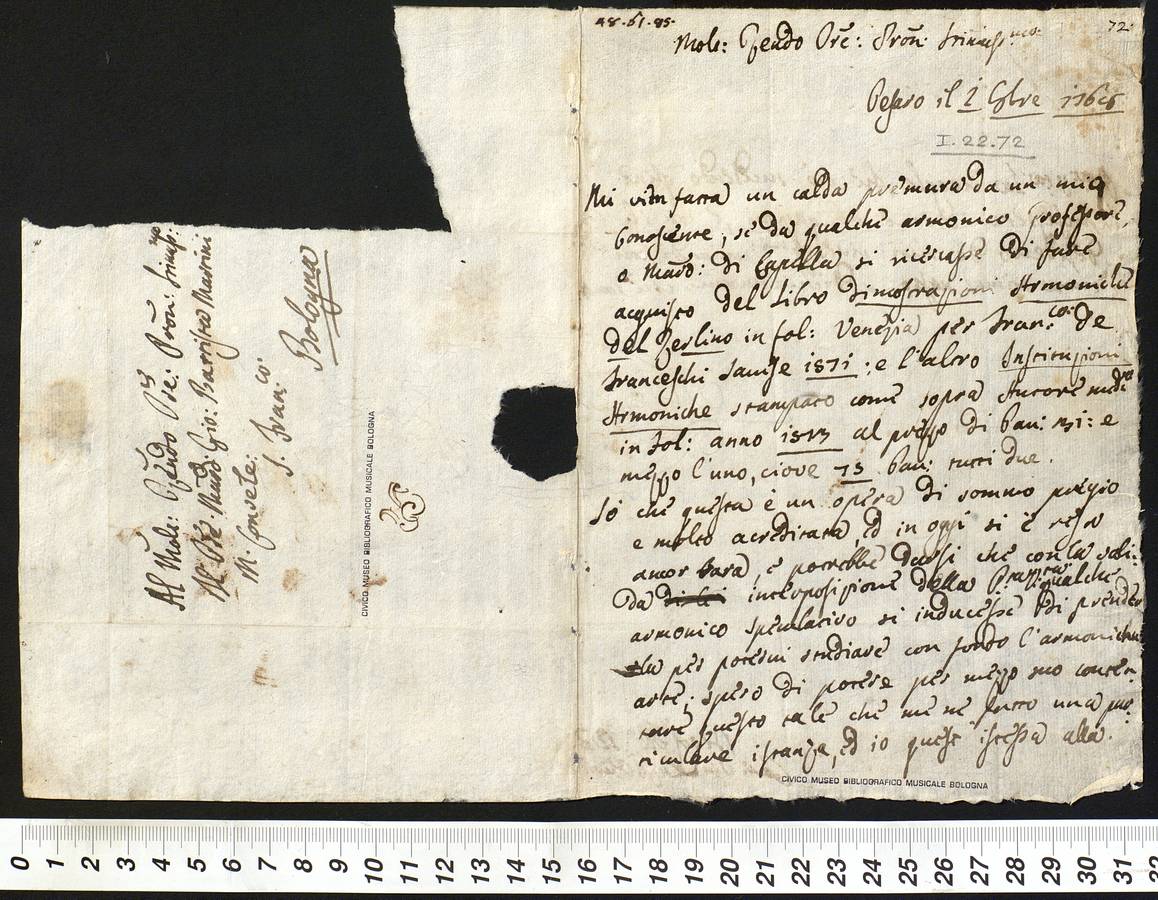 48.61.95.
72
Molt: Rendo Pre: Pron:
Pesaro il 1 176
I.22.72
Mi vien fatta un calda premura da un mio
Conoscente, se da qualche armonico professore,
o Maro: di Capella si ricercasse di fare
acquisto del Libro Dimostrazioni Armoniche
del Zerlino in fol: Venezia per Franco: De
Franceschi Sanese 1571: e l'altro Institutioni
Armoniche stampato come sopra Autore
in fol: anno 1573 al prezzo di bau: e
mezzo l'uno, ciove 75 bau: tutti due.
Sò che questa è un opera di sommo pregio
e molto acreditata, ed in oggi si è resa
ancor rara, e potrebbe darsi che con la vali:
da interposizione della qualche
armonico speculativo si inducesse di prender
per potervi studiare con fondo l'armonicha
arte; spero di potere per mezzo suo conten:
tare questo tale che me ne fatto una par:
ticulare istanza, ed io quest' istessa alla.
CIVICO MUSEO BIBLIOGRAFICO MUSICALE BOLOGNA
Al Molt: Rendo Pre: Pron:
Il Pre Maro: Gio: Battista Martini
M: Convete:
S. Franco:
Bologna
CIVICO MUSEO BIBLIOGRAFICO MUSICALE BOLOGNA
0 1 2 3 4 5 6 7 8 9 10 11 12 13 14 15 16 17 18 19 20 21 22 23 24 25 26 27 28 29 30 31